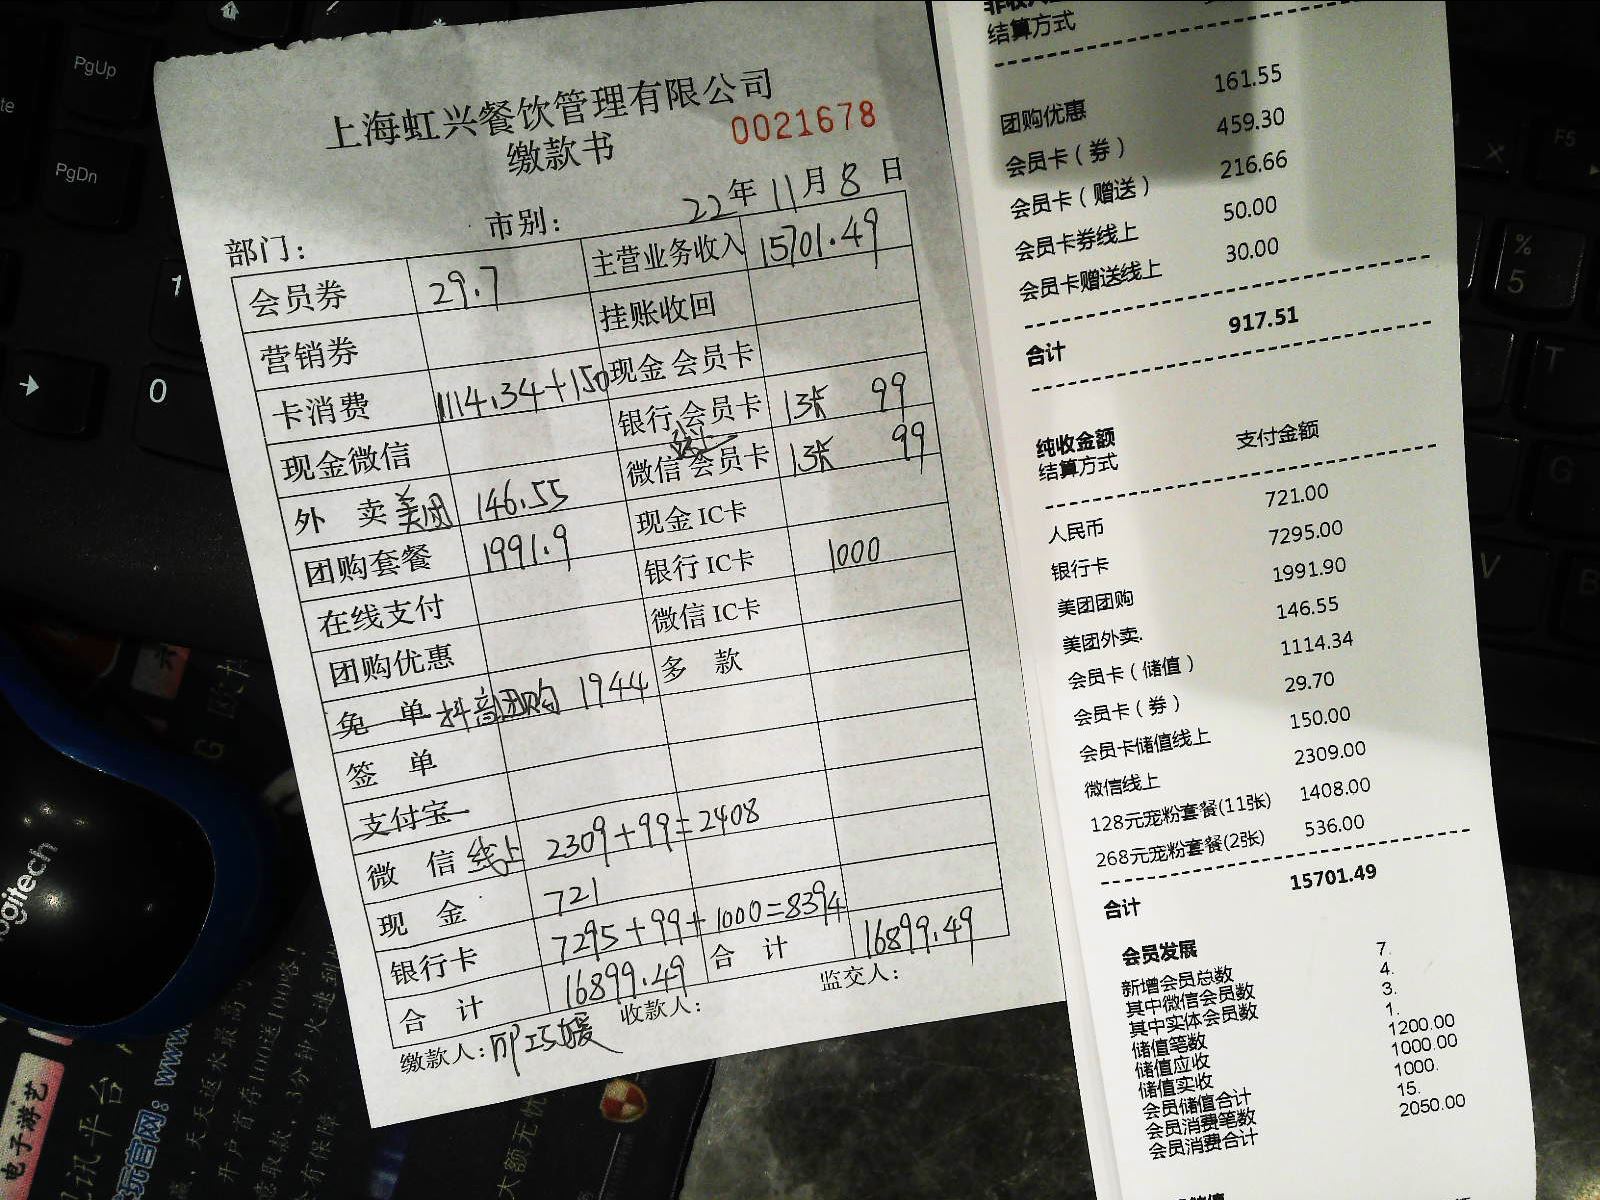 PgUp
PgDn
0
上海虹兴餐饮管理有限公司
缴款书
0021678
部门: 市别: 22年 11月 8日
会员券 29.7 主营业务收入 15701.49
营销券 挂账收回
卡消费 1114.34+150 现金会员卡
现金微信 银行会员卡 1张 99
外卖美团 146.55 微信会员卡 1张 99
团购套餐 1991.9 现金IC卡
在线支付 银行IC卡 1000
团购优惠 微信IC卡
免单 抖音团购 1944 多款
签单
支付宝
微信线上 2309+99=2408
现金 721
银行卡 7295+99+1000=8394
合计 16899.49 合计 16899.49
缴款人: 收款人: 监交人:
结算方式
团购优惠 161.55
会员卡(券) 459.30
会员卡(赠送) 216.66
会员卡券线上 50.00
会员卡赠送线上 30.00
合计 917.51
纯收金额
结算方式 支付金额
人民币 721.00
银行卡 7295.00
美团团购 1991.90
美团外卖. 146.55
会员卡(储值) 1114.34
会员卡(券) 29.70
会员卡储值线上 150.00
微信线上 2309.00
128元宠粉套餐(11张) 1408.00
268元宠粉套餐(2张) 536.00
合计 15701.49
会员发展
新增会员总数 7.
其中微信会员数 4.
其中实体会员数 3.
储值笔数 1.
储值应收 1200.00
储值实收 1000.00
会员储值合计 1000.
会员消费笔数 15.
会员消费合计 2050.00
F5
%
5
T
G
V
B
logitech
电子游艺